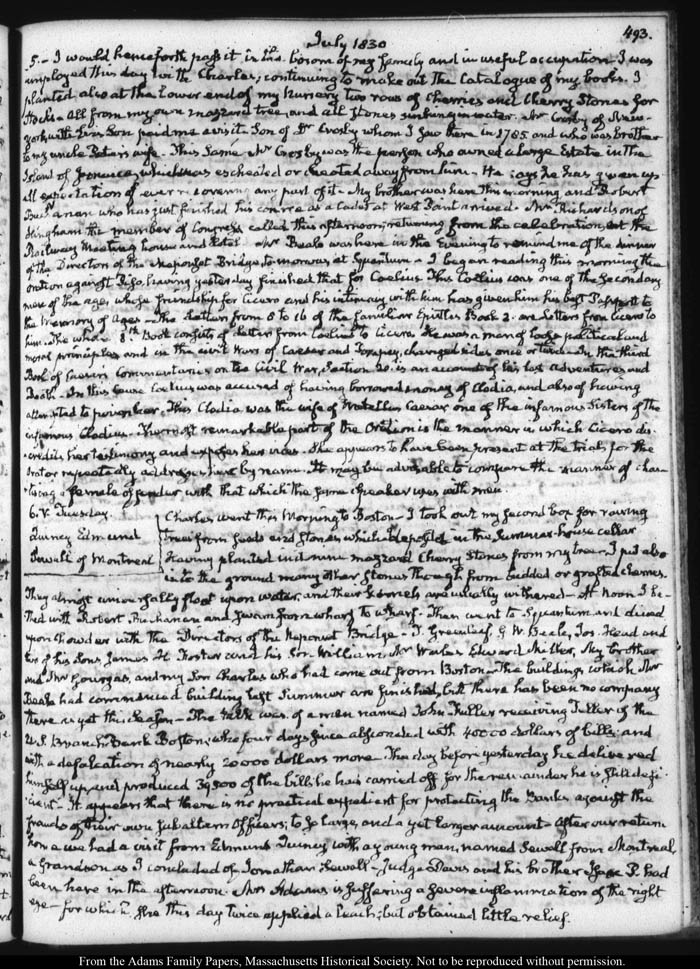 493.
July 1830
5.- I would henceforth pass it in the bosom of my family and in useful occupation. I was
employed this day with Charles; continuing to make out the Catalogue of my books. I
planted also at the lower end of my Nursery two rows of cherries and Cherry Stones for
Stocks - all from my own mazzard tree, and all Stones sunk in water. Mr Crosby of New-
york with his Son paid me a visit - Son of Dr Crosby whom I saw here in 1785 and who was brother
to my uncle Peter's wife. This same Mr Crosby was the person who owned a large Estate in the
Island of Jamaica, which was escheated or cheated away from him. He says he has given up
all expectation of ever recovering any part of it. My brother was here this morning and Robert
Buchanan who has just finished his course as a Cadet at West Point arrived. Mr Richardson of
Hingham the member of Congress called this afternoon; returning from the celebration at the
Railway Meeting house and Hotel. Mr Beale was here in the Evening to remind me of the dinner
of the Directors of the Neponset Bridge, to-morrow, at Squantum. I began reading this morning the
oration against Piso, having yesterday finished that for Caelius. This Caelius was one of the secondary
men of the age, whose friendship for Cicero and his intimacy with him has given him his best Passport to
the memory of Ages. The Letters from 8 to 16 of the familiar Epistles Book 2. are Letters from Cicero to
him. The whole 8th Book consists of Letters from Caelius to Cicero. He was a man of loose political and
moral principles and in the civil Wars of Caesar and Pompey, changed sides once or twice. In the third
Book of Caesar's Commentaries on the Civil War, Section 20. is an account of his last adventures and
Death. In this cause Caelius was accused of having borrowed money of Clodia, and also of having
attempted to poison her. This Clodia was the wife of Metellus one of the infamous Sisters of the
infamous Clodius. The most remarkable part of the Oration is the manner in which Cicero dis-
credits her testimony and exposes her vices. She appears to have been present at the trial, for the
orator repeatedly addresses her by name. It may be advisable to compare the manner of chas-
tising a female offender with that which the same speaker uses with men.
6. V. Tuesday.
Quincy Edmund
Sewall of Montreal
Charles went this Morning to Boston. I took out my second box for raising
trees from seeds and stones, which I deposited in the Summer-house cellar
Having planted in it nine mazzard Cherry Stones from my tree. I put also
into the ground many other Stones though from budded or grafted cherries.
They almost universally float upon water, and their kernels are usually withered. At noon I ba-
thed with Robert Buchanan and swam from wharf to wharf. Then went to Squantum and dined
upon Chowder with the Directors of the Neponset Bridge - T. Greenleaf, G. W. Beale, Jos. Head and
two of his Sons, James H. Foster and his Son William, Mr Wales, Edward Miller, My brother
and Mr Gourgas, and my Son Charles who had come out from Boston. The buildings which Mr
Beale had commenced building last Summer are finished, but there has been no company
there as yet this season. The talk was of a man named John Fuller receiving Teller of the
U.S. Branch Bank Boston; who four days since absconded with 40000 dollars of bills; and
with a defalcation of nearly 20000 dollars more. The day before yesterday he delivered
himself up, and produced 39,500 of the bills he has carried off for the remainder he is still defi-
cient. It appears that there is no practical expedient for protecting the Banks against the
frauds of their own subaltern Officers; to so large, and a yet larger amount. After our return
home we had a visit from Edmund Quincy with a young man, named Sewall from Montreal,
a Grandson as I concluded of Jonathan Sewall. Judge Davis and his brother Isaac P. had
been here in the afternoon. Mrs Adams is suffering a severe inflammation of the right
eye - for which she this day twice applied a leach; but obtained little relief.
From the Adams Family Papers, Massachusetts Historical Society. Not to be reproduced without permission.